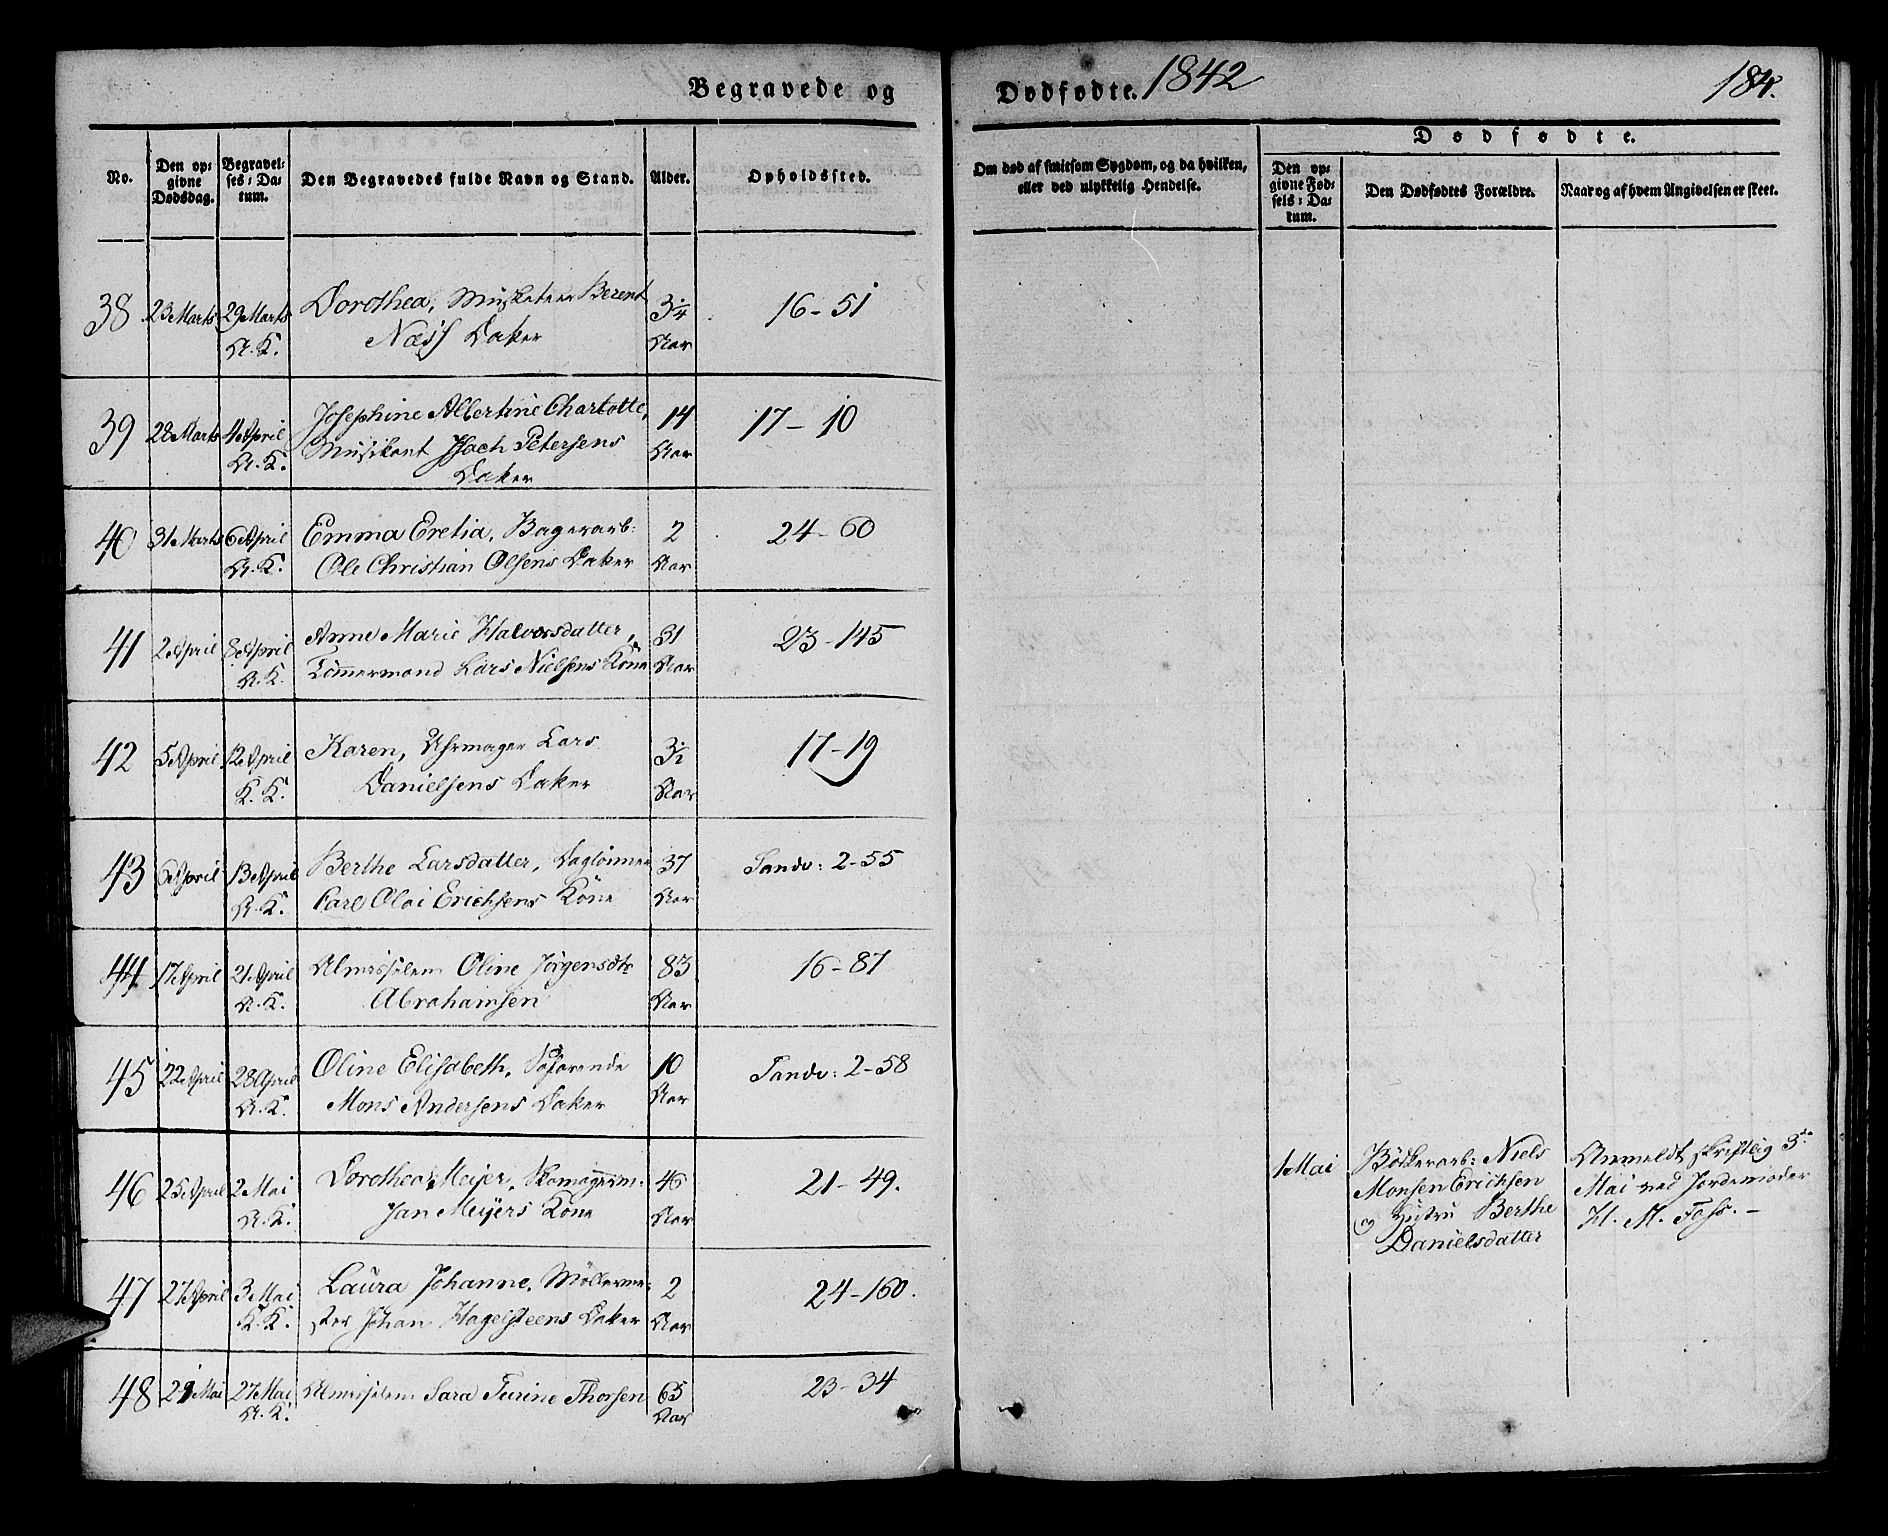 Begravede og Dødfødte. 1842
184.
No.
Den opgivne Dødsdag.
Begravelses-Datum.
Den Begravedes fulde Navn og Stand.
Alder.
Opholdssted.
Om død af smitsom Sygdom, og da hvilken,
eller ved ulykkelig Hendelse.
Dødfødte.
Den opgivne Fødsels-Datum.
Den Dødfødtes Forældre.
Naar og af hvem Angivelsen er skeet.
38 23 Marts 29 Marts Dorothea, Musketeer Berent 3¼ 16-51
A.K. Næss Datter Aar
39 28 Marts 4 April Josephine Albertine Charlotte, 14 17-10
A.K. Musikant Isach Petersens Aar
Datter
40 31 Marts 6 April Emma Eretia, Bagerarb: 2 24-60
A.K. Ole Christian Olsens Datter Aar
41 2 April 8 April Anne Marie Halvorsdatter, 31 23-145
A.K. Tömmermand Lars Nielsens Köne Aar
42 5 April 12 April Karen, Uhrmager Lars 3½ 17-19
K.K. Danielsens Datter Aar
43 6 April 13 April Berthe Larsdatter, Daglönner 37 Sandv: 2-55
A.K. Carl Olai Erichsens Köne Aar
44 17 April 21 April Almisselem Oline Jörgensdtr 83 16-87
A.K. Abrahamsen Aar
45 22 April 28 April Oline Elisabeth, Söfarende 10 Sandv: 2-58
A.K. Mons Andersens Datter Aar
46 25 April 2 Mai Dorothea Meijer, Skomagerm: 46 21-49.
A.K. Jan Meijers Köne Aar
1 Mai Bödkerarb: Niels
Monsen Erichsen
og Hustru Berthe
Danielsdatter
Anmeldt skriftlig 3de
Mai ved Jordemoder
H. M. Foss. -
47 27 April 3 Mai Laura Johanne, Möllerme- 2 24-160.
K.K. ster Johan Hagelsteens Datter Aar
48 21 Mai 27 Mai Almisselem Sara Turine Thorsen 65 23-34
A.K. Aar